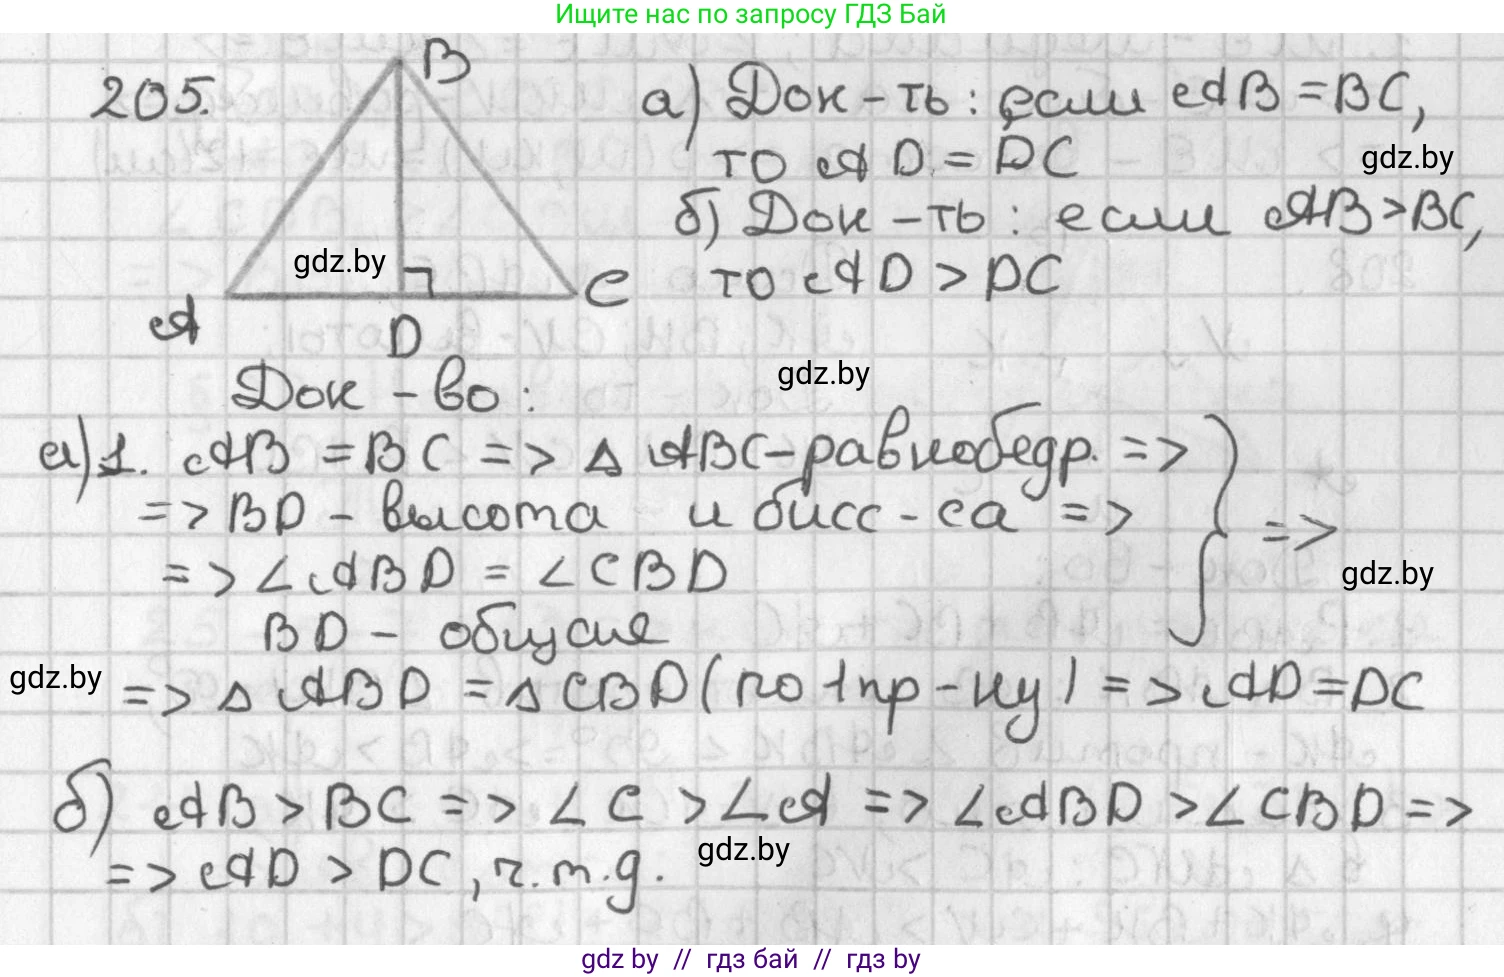 Ищите нас по запросу ГДЗ Бай
205.
B
а) Док-ть: если AB = BC,
то AD = DC
gdz.by
б) Док-ть: если AB > BC,
gdz.by
то AD > DC
A
C
D
gdz.by
Док-во:
а) 1. AB = BC => △ ABC - равнобедр. =>
=> BD - высота и бисс-са =>
=>
=> ∠ABD = ∠CBD
gdz.by
BD - общая
gdz.by
=> △ ABD = △ CBD (по 1 пр-ку) => AD = DC
б) AB > BC => ∠C > ∠A => ∠ABD > ∠CBD =>
gdz.by
=> AD > DC, ч.т.д.
gdz by // гдз бай // гдз by